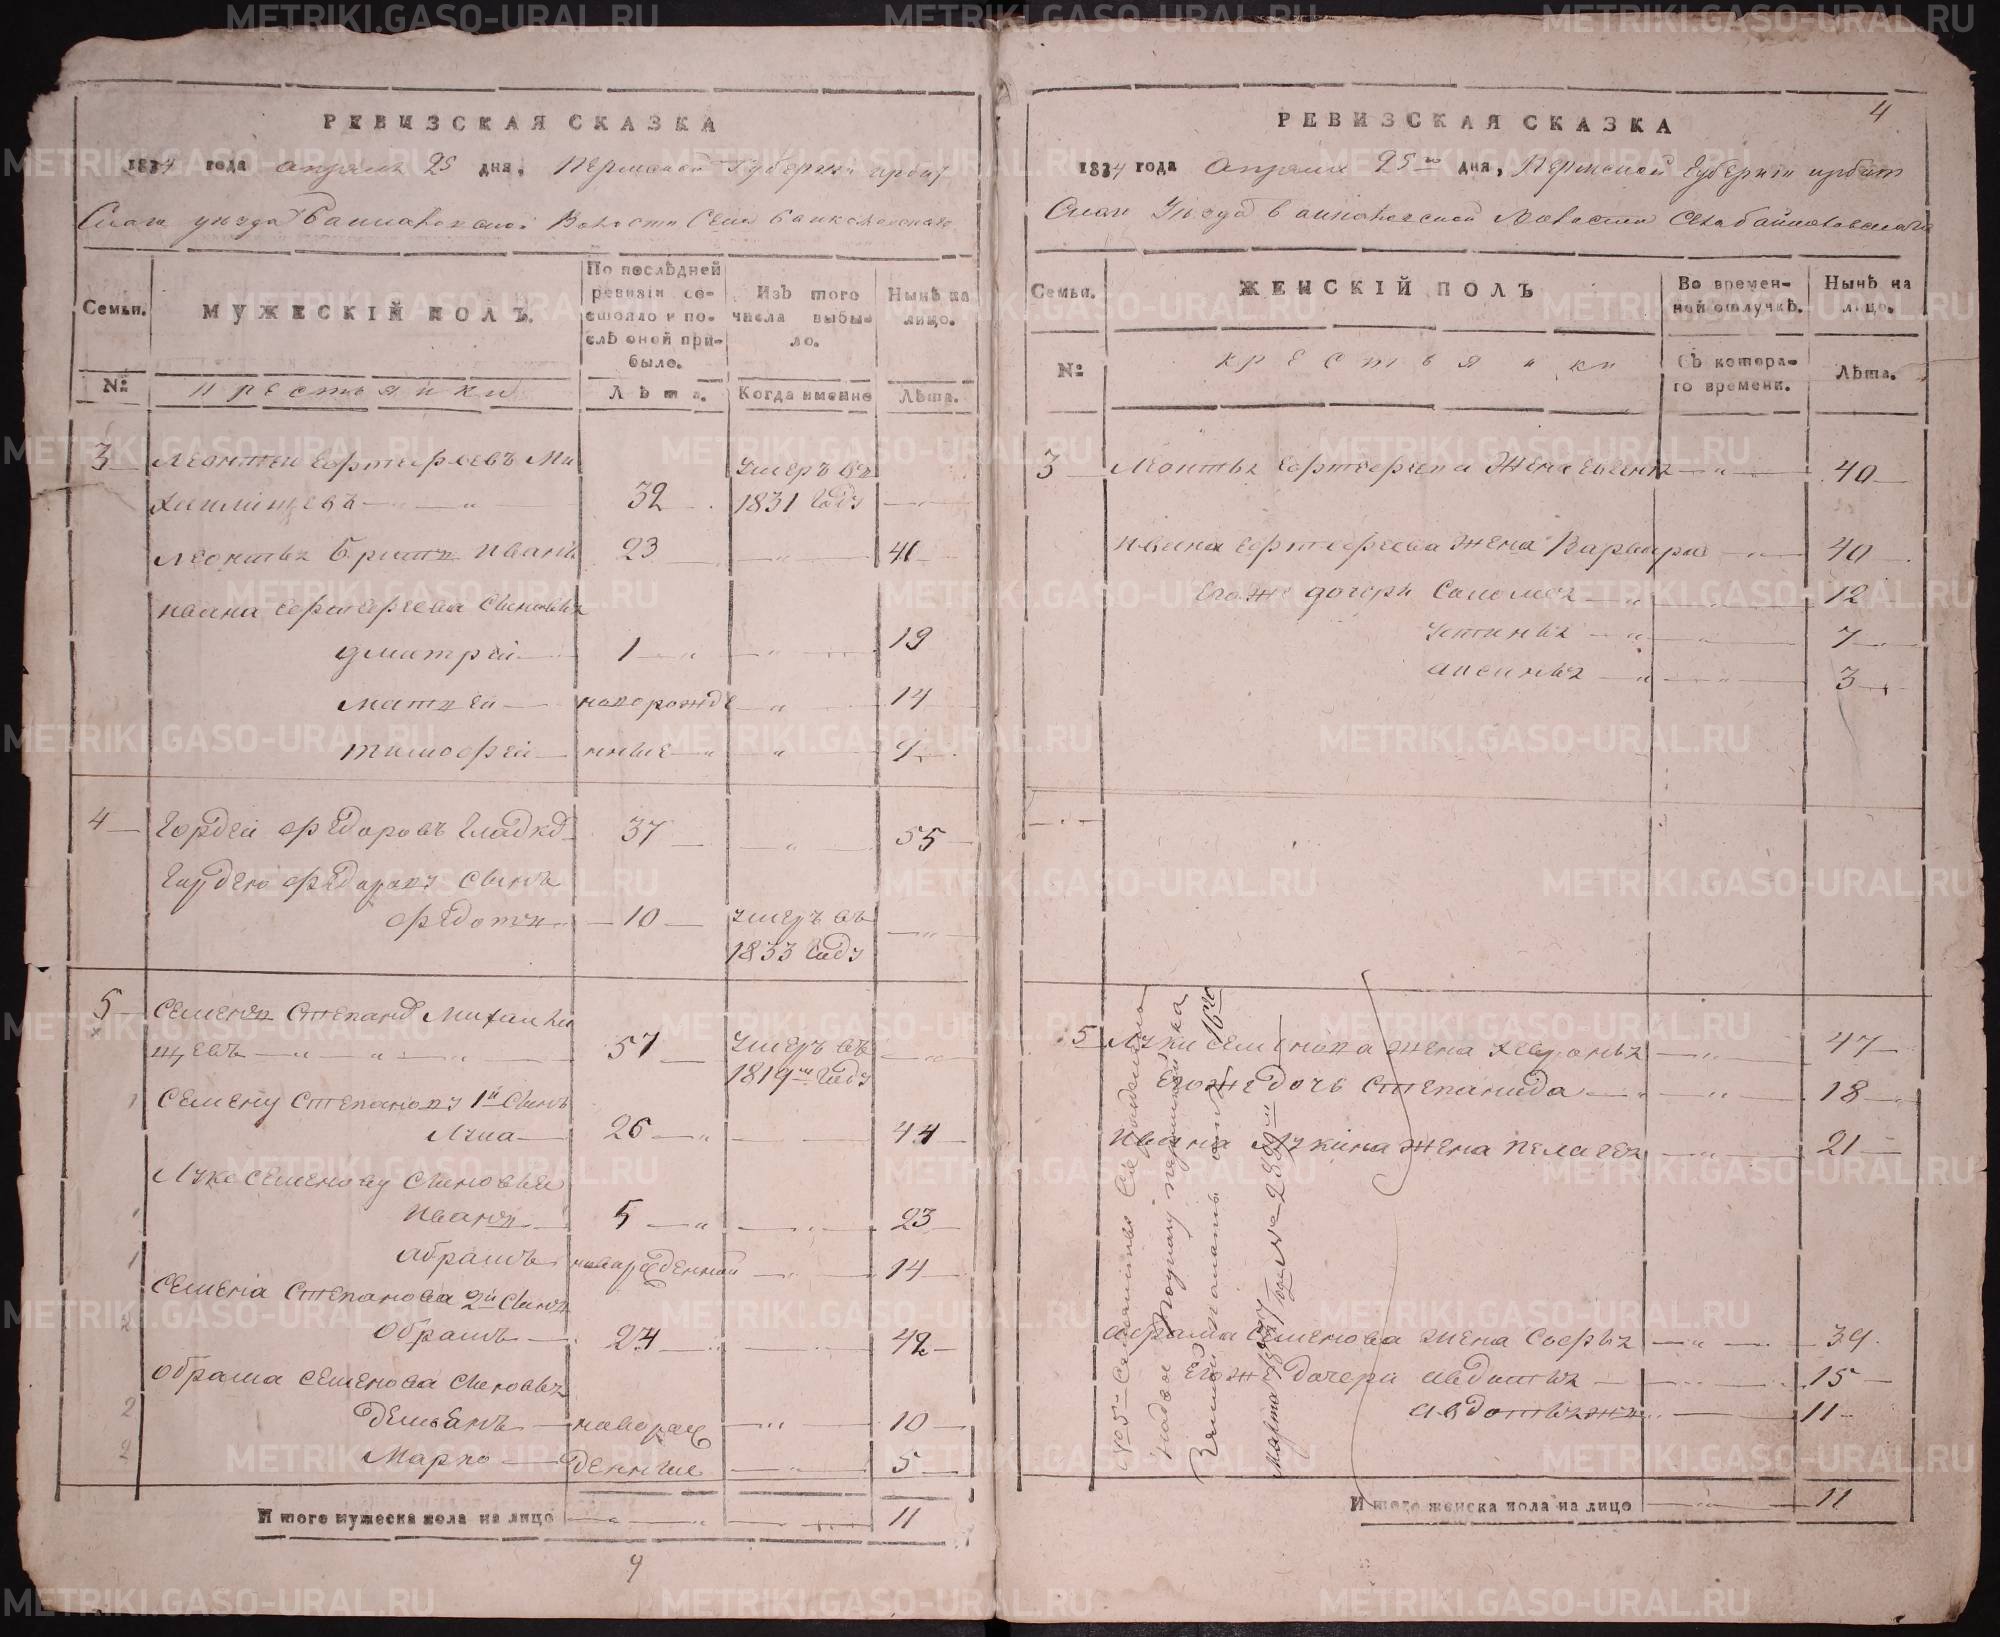 РЕВИЗСКАЯ СКАЗКА
1834 года апреля 25 дня, Пермской Губернии ирбит
Скаго уезда Баиновской Волости Села Баиновскаго
Семьи.
МУЖЕСКІЙ ПОЛЪ
По послѣдней ревизіи состояло и послѣ оной прибыло.
Изъ того числа выбыло.
Нынѣ на лицо.
№
крестьянки
Лѣта.
Когда именно
Лѣта.
3 Леонтеи Ефтефеевъ Ми
хаилищевъ 32 Умеръ въ 1831 Году
Леонтья Братъ Иванъ 23 41
Ивана Ефтефеева Сыновья
дмитрій 1 19
матвей новорожде 14
тимофей нные 9
4 Гордей федоровъ Гладк 37 55
Гордею федорову Сынъ
федотъ 10 умеръ въ 1833 Году
5 Семенъ Степанов Михаили
щевъ 57 Умеръ въ 1819м Году
Семену Степанову 1й Сынъ
Лука 26 44
Луке Семенову Сыновья
Иванъ 5 23
абрамъ новорожденной 14
Семена Степанова 2й Сынъ
Обрамъ 24 42
Обрама Семенова Сыновья
Демьянъ новорож 10
Марко денные 5
И того мужеска пола на лицо 11
9
4
РЕВИЗСКАЯ СКАЗКА
1834 года апреля 25го дня, Пермской Губернии ирбит
Скаго Уезда Баиновской Волости Села Байновскаго
Семьи.
ЖЕНСКІЙ ПОЛЪ
Во временной отлучкѣ.
Нынѣ на лицо.
№
крестьянки
Съ котораго времени.
Лѣта.
3 Леонтья Ефтефеева Жена 40
Ивана Ефтефеева Жена Варвара 40
Егоже дочери Соломея 12
Устинья 7
аксинья 3
5 Луки Семенова жена Хавронья 47
Егоже Дочь Степанида 18
Ивана Лукина жена пелагея 21
Абрама Семенова жена Софья 39
Егож Дочери авдотья 15
авдотья жъ 11
№ 5й
Марта 1837 Года № 2889м
16го
И того женска пола на лицо 11
METRIKI.GASO-URAL.RU